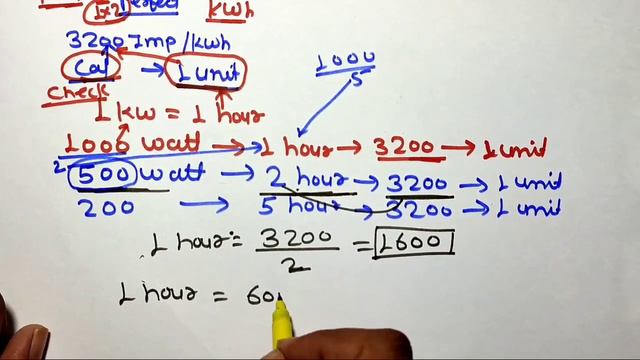 1x2 Perfect kwh
3200 Imp/kwh
Cal → 1 unit
1000
5
Check
1 kw = 1 hour
1000 watt → 1 hour → 3200 → 1 unit
2 500 watt → 2 hour → 3200 → 1 unit
200 → 5 hour → 3200 → 1 unit
1 hour = 3200 = 1600
2
1 hour = 60